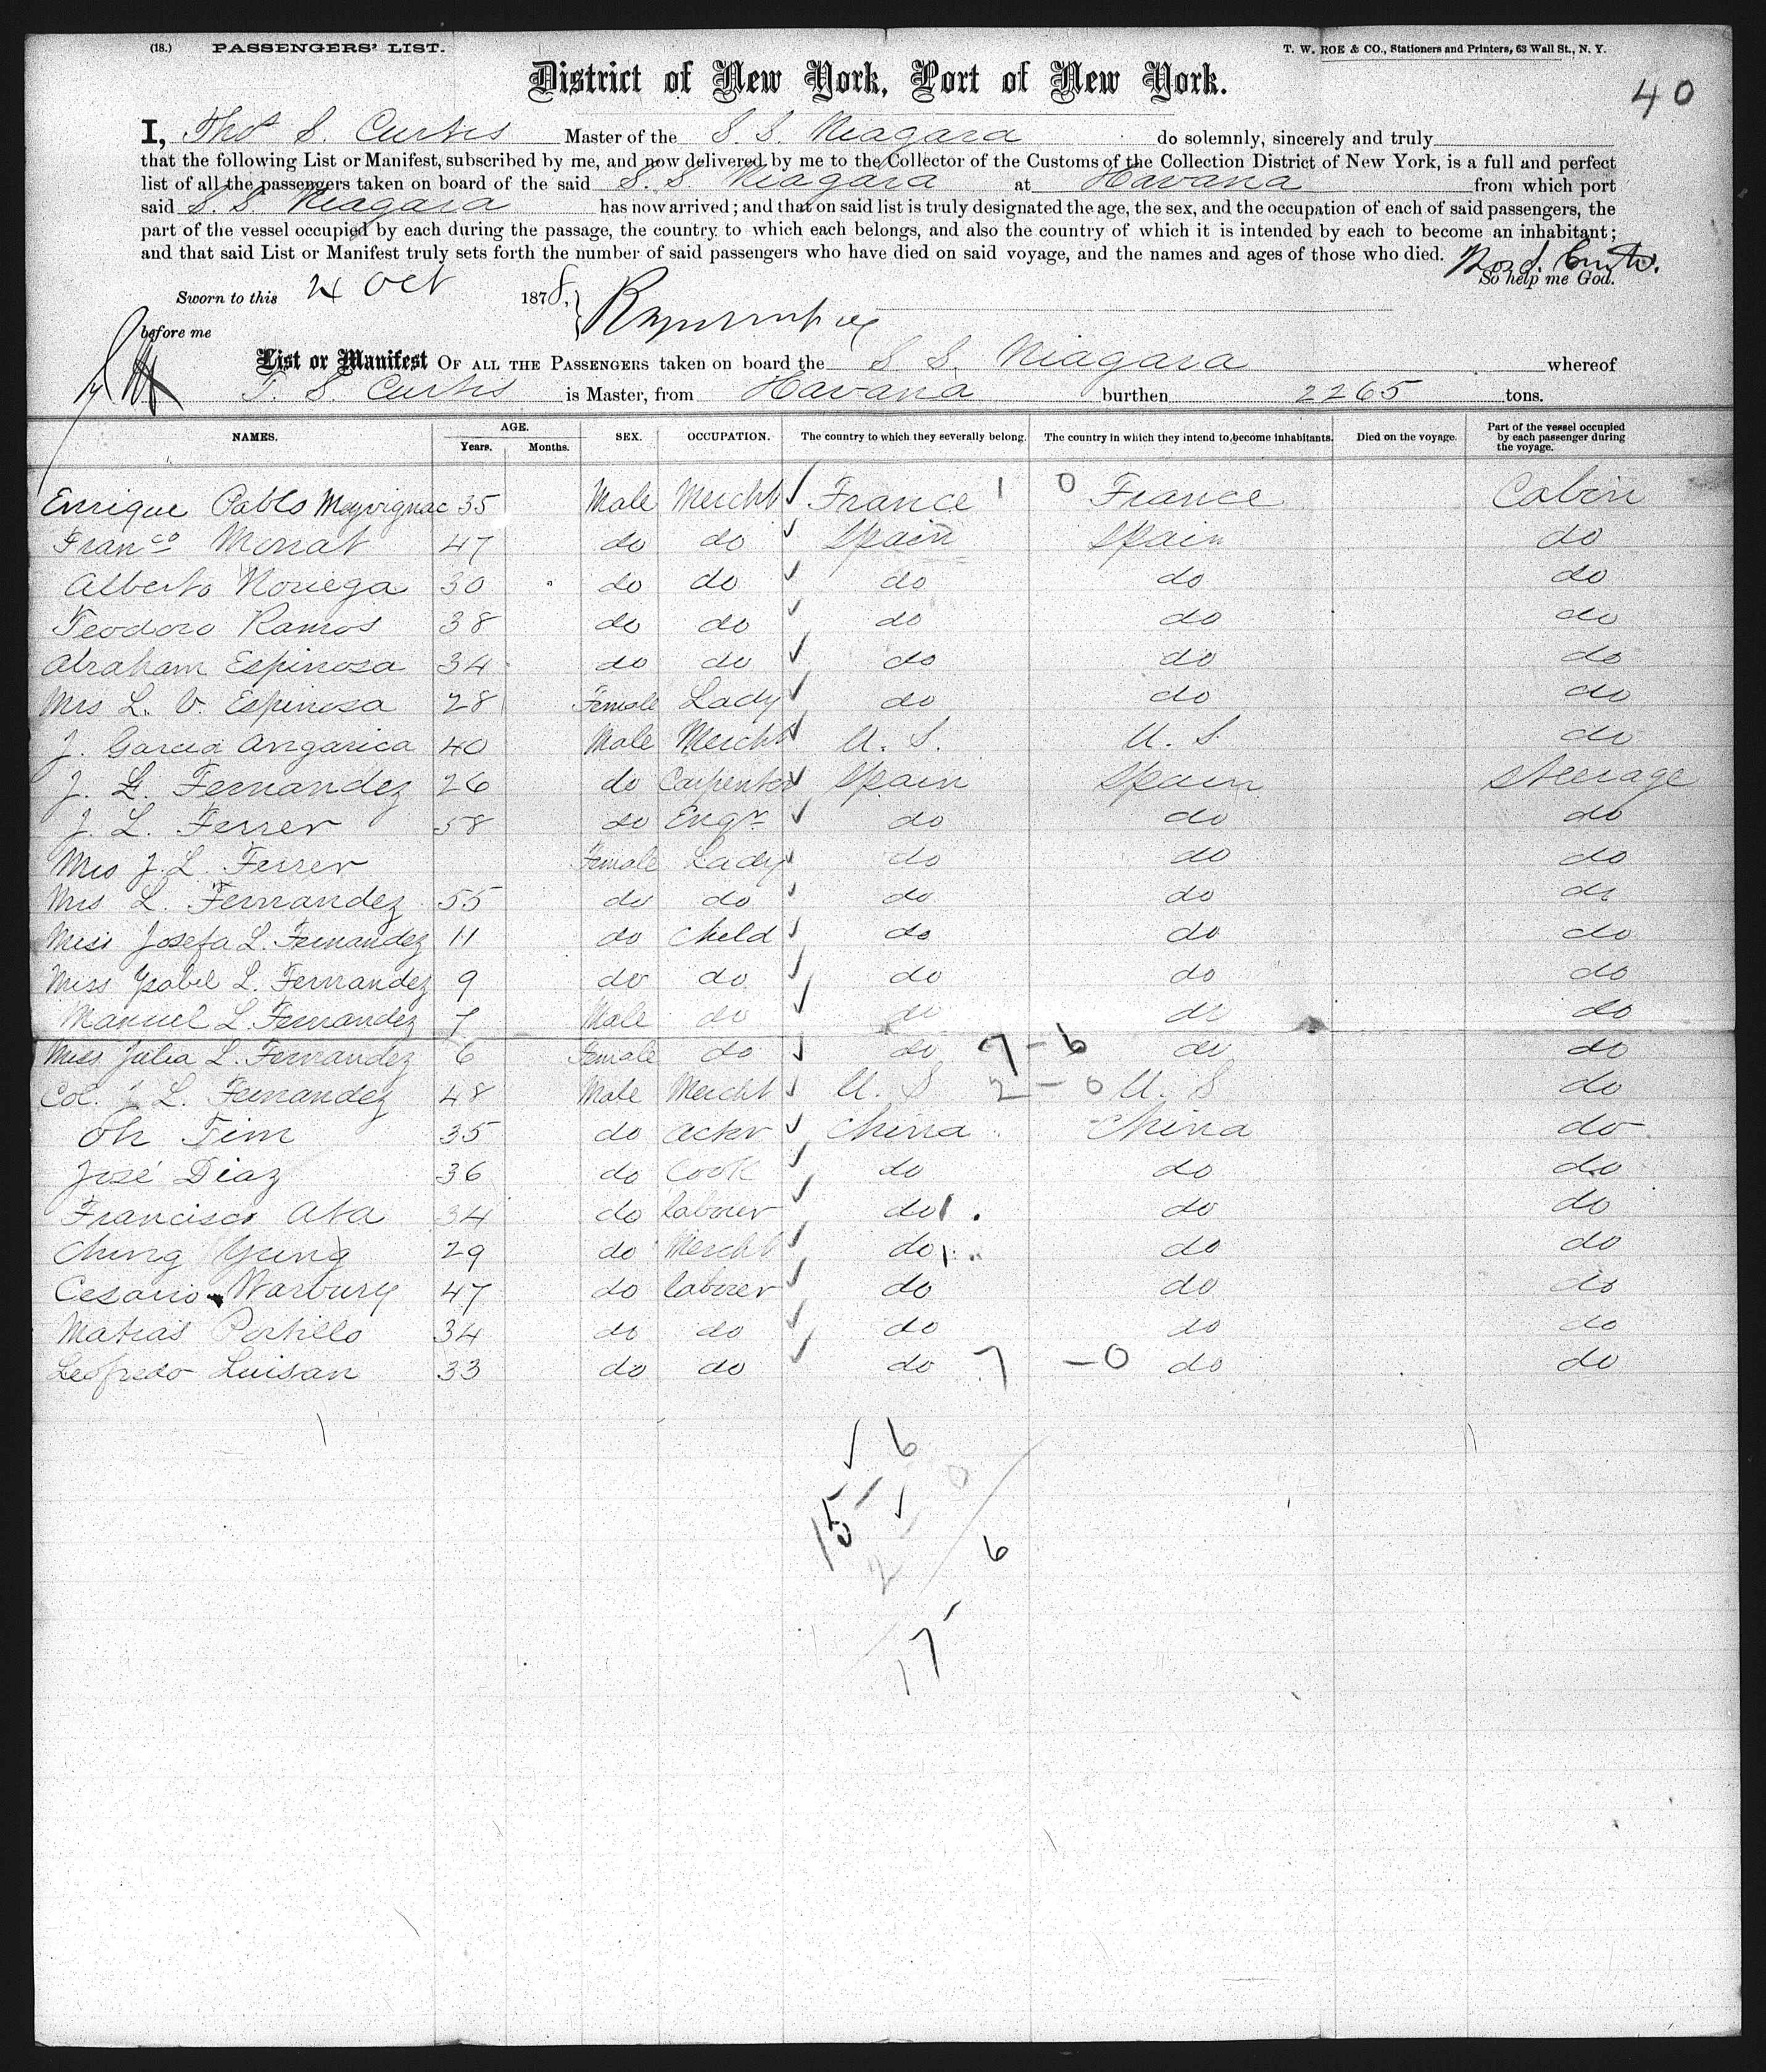 (18.) PASSENGERS' LIST. T. W. ROE & CO., Stationers and Printers, 63 Wall St., N. Y.
District of New York, Port of New York.
40
I, Thos S. Curtis Master of the S. S. Niagara do solemnly, sincerely and truly
that the following List or Manifest, subscribed by me, and now delivered by me to the Collector of the Customs of the Collection District of New York, is a full and perfect
list of all the passengers taken on board of the said S. S. Niagara at Havana from which port
said S. S. Niagara has now arrived; and that on said list is truly designated the age, the sex, and the occupation of each of said passengers, the
part of the vessel occupied by each during the passage, the country to which each belongs, and also the country of which it is intended by each to become an inhabitant;
and that said List or Manifest truly sets forth the number of said passengers who have died on said voyage, and the names and ages of those who died.
So help me God.
Sworn to this 24 Oct 1878,
before me
List or Manifest OF ALL THE PASSENGERS taken on board the S. S. Niagara whereof
T. S. Curtis is Master, from Havana burthen 2265 tons.
NAMES. AGE. Years. Months. SEX. OCCUPATION. The country to which they severally belong. The country in which they intend to become inhabitants. Died on the voyage. Part of the vessel occupied by each passenger during the voyage.
Enrique Pablo Mayvignac 35 Male Mercht France 1 0 France Cabin
Franco Monat 47 do do Spain Spain do
Alberto Noriega 30 do do do do do
Teodoro Ramos 38 do do do do do
Abraham Espinosa 34 do do do do do
Mrs L. V. Espinosa 28 Female Lady do do do
J. Garcia Angarica 40 Male Mercht U. S. U. S. do
J. L. Fernandez 26 do Carpenter Spain Spain Steerage
J. L. Ferrer 58 do Engr do do do
Mrs J. L. Ferrer Female Lady do do do
Mrs L. Fernandez 55 do do do do do
Miss Josefa L. Fernandez 11 do Child do do do
Miss Ysabel L. Fernandez 9 do do do do do
Manuel L. Fernandez 7 Male do do do do
Miss Julia L. Fernandez 6 Female do do 7-6 do do
Col. J. L. Fernandez 48 Male Mercht U. S 2-0 U. S do
Oh Tim 35 do Actor China China do
José Diaz 36 do Cook do do do
Francisco Ata 34 do laborer do do do
Ching Yung 29 do Mercht do do do
Cesario Warbury 47 do laborer do do do
Matias Portillo 34 do do do do do
Leofredo Luisan 33 do do do 7 -0 do do
6
0
15
2
6
17